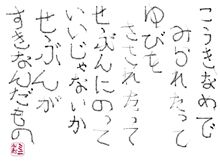 こうきなめで
みられたって
ゆびも
さされたって
せぶんにのって
いいじゃないか
せぶんが
すきなんだもの